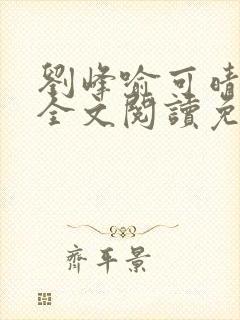 劉峰喻可晴
全文閱讀免
齊平景